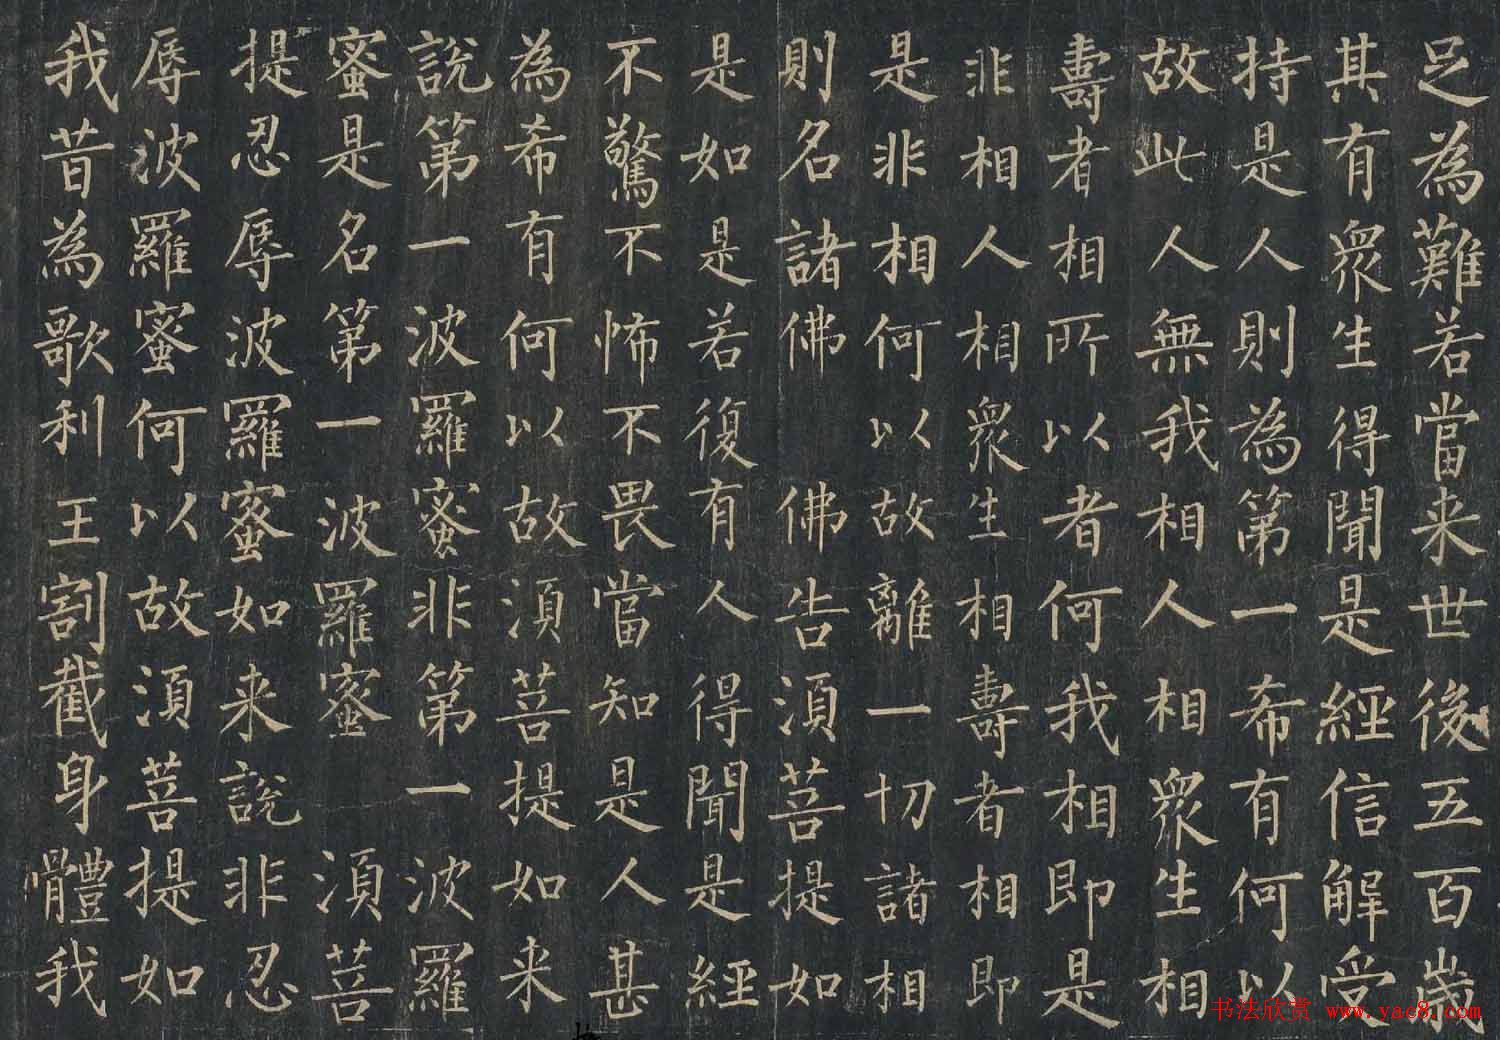 足為難若當来世後五百歲
其有眾生得聞是經信解受
持是人則為第一希有何以
故此人無我相人相眾生相
壽者相所以者何我相即是
非相人相眾生相壽者相即
是非相何以故離一切諸相
則名諸佛佛告須菩提如
是如是若復有人得聞是經
不驚不怖不畏當知是人甚
為希有何以故須菩提如来
說第一波羅蜜非第一波羅
蜜是名第一波羅蜜須菩
提忍辱波羅蜜如来說非忍
辱波羅蜜何以故須菩提如
我昔為歌利王割截身體我
书法欣赏 www.yac8.com